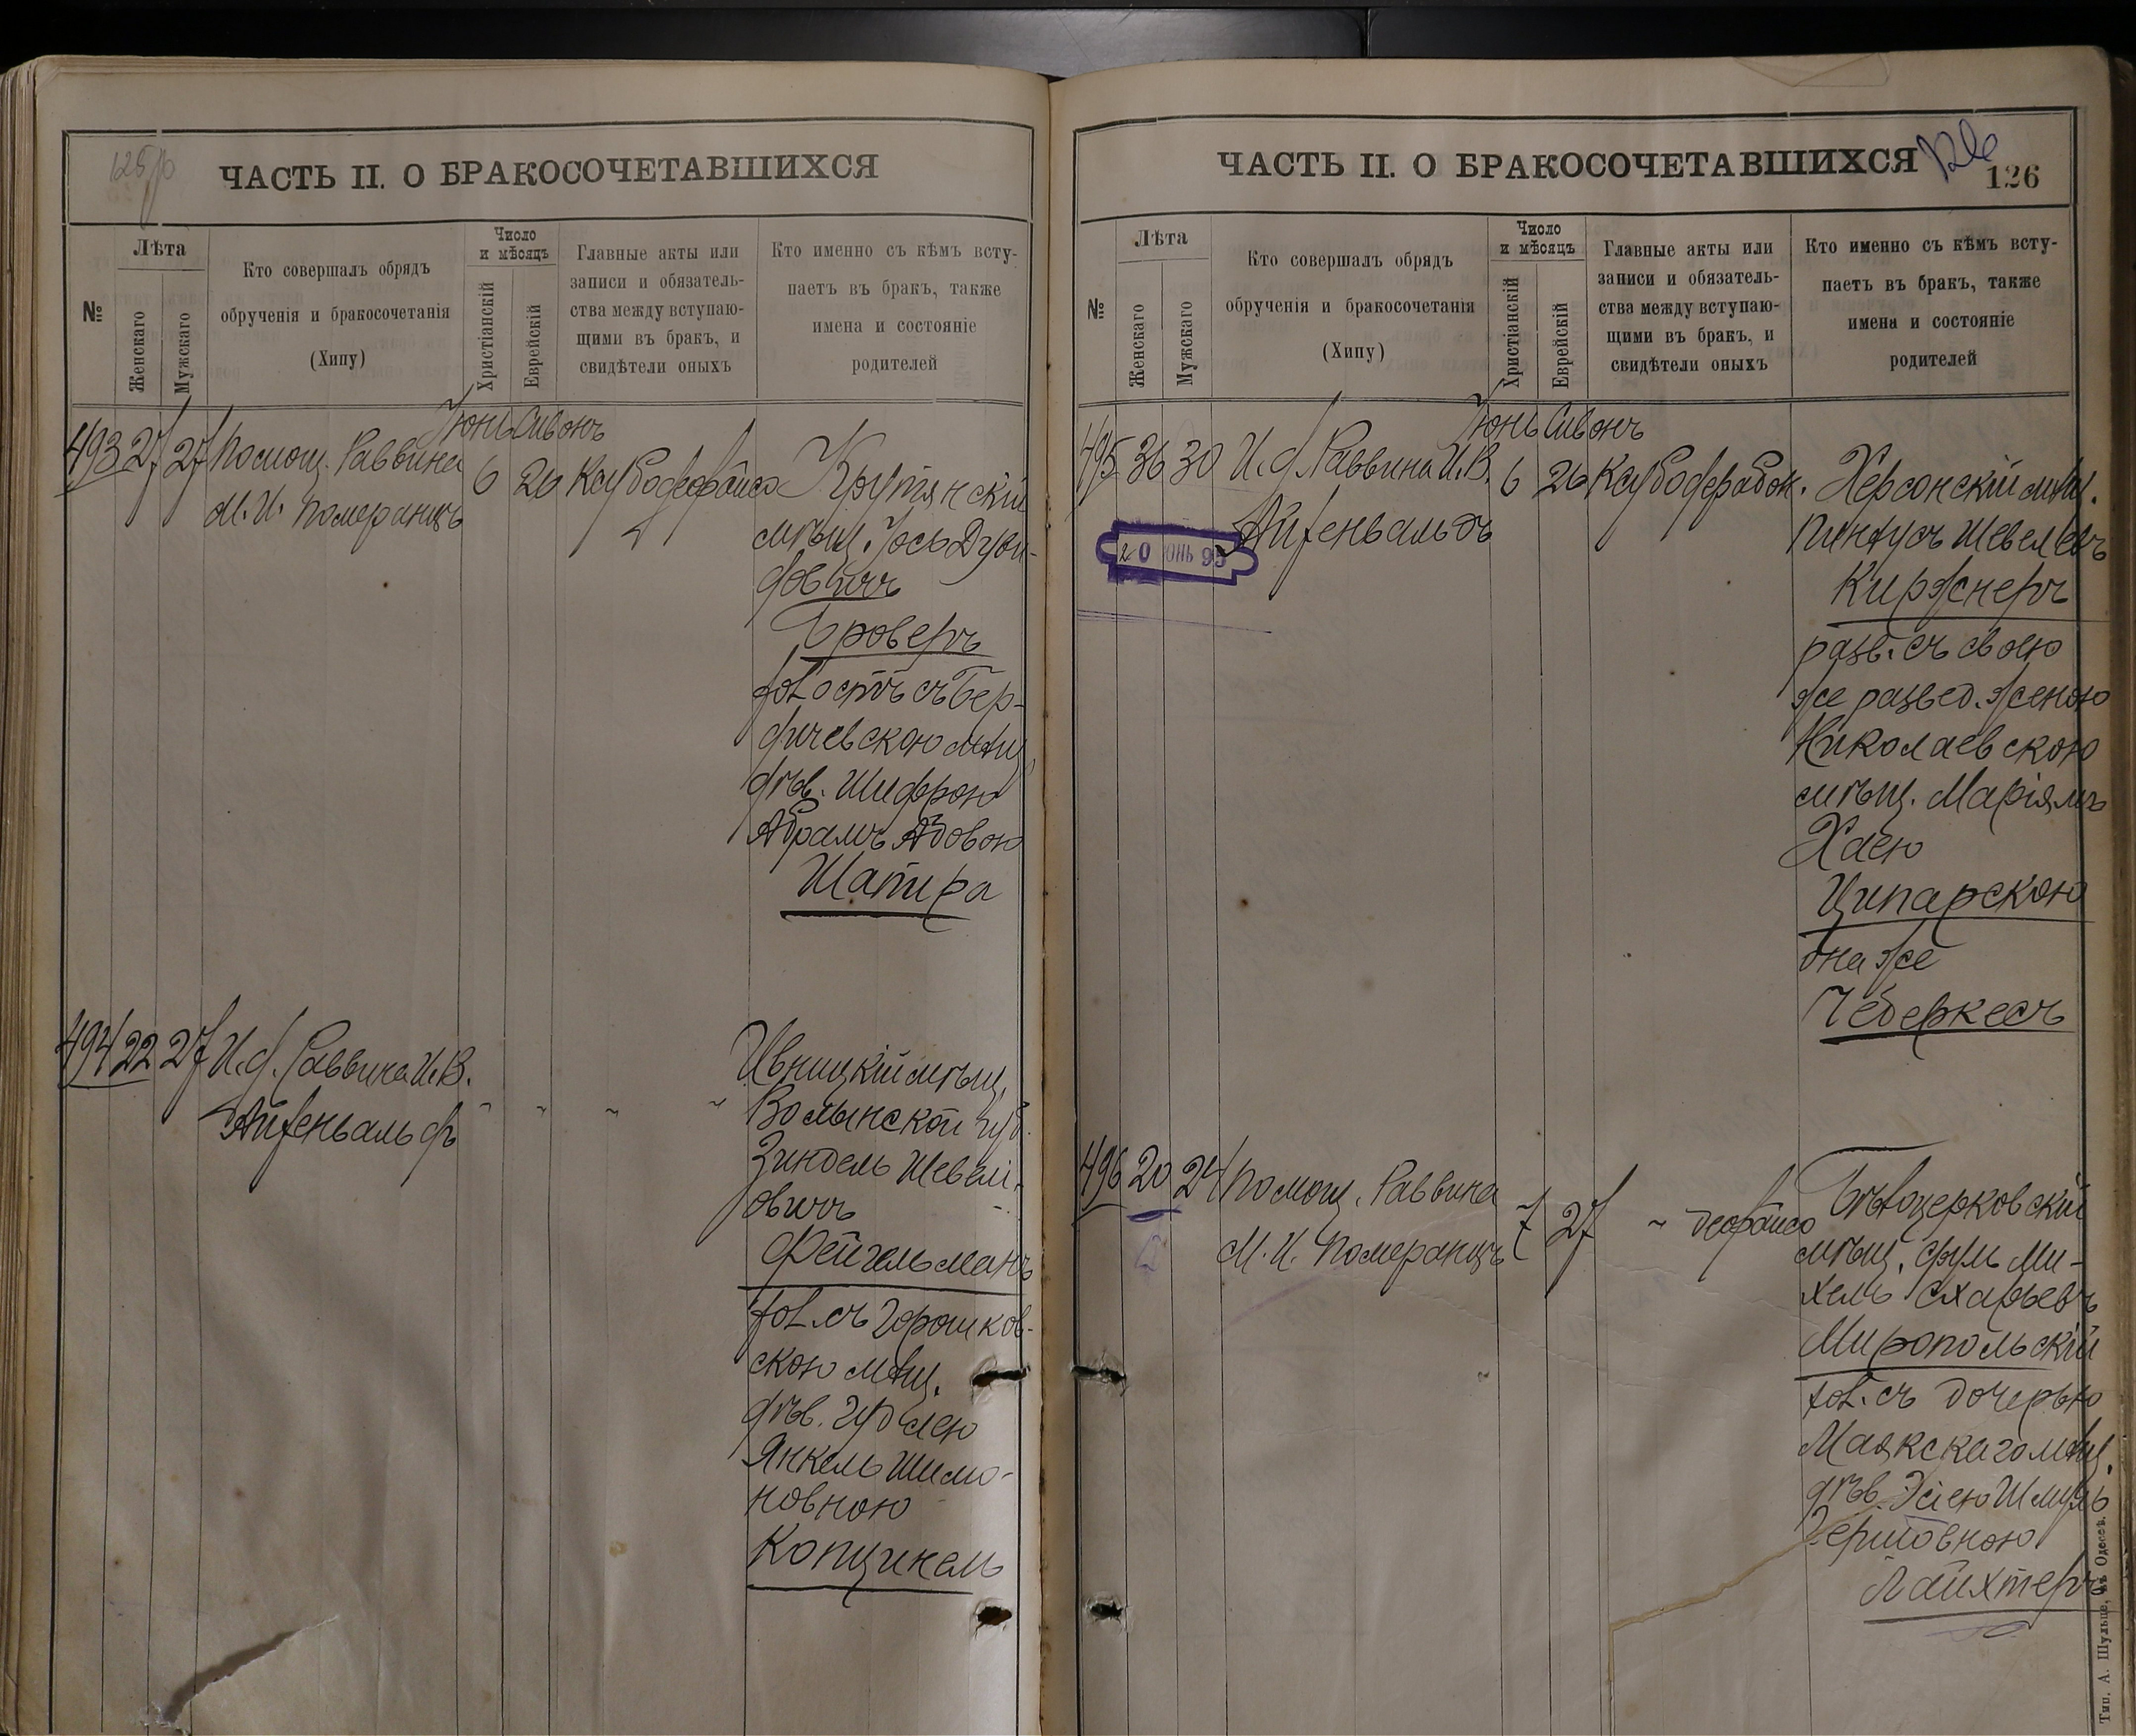 ЧАСТЬ II. О БРАКОСОЧЕТАВШИХСЯ
№
Лѣта
Женскаго
Мужскаго
Кто совершалъ обрядъ
обрученія и бракосочетанія
(Хипу)
Число
и мѣсяцъ
Христіанскій
Еврейскій
Главные акты или
записи и обязатель-
ства между вступаю-
щими въ бракъ, и
свидѣтели оныхъ
Кто именно съ кѣмъ всту-
паетъ въ бракъ, также
имена и состояніе
родителей
Іюнь Сивонъ
493 27 27 Помощ. Раввина
М. И. Померанцъ
6 26
Крутянскій
мѣщ. Іось Дуви-
довичъ
Броверъ
хол остъ съ Бер-
дичевскою мѣщ.
дѣв. Шифрою
Абрамъ Абовою
Шапира
494 22 27 И. д. Раввина И. В.
Айзенвальдъ
" " " "
Ивницкій мѣщ.
Волынской губ.
Зиндель Шевели-
овичъ
Фейгельманъ
хол. съ Горошков-
скою мѣщ.
дѣв.
Янкель Шимо-
новною
Копцинель
ЧАСТЬ II. О БРАКОСОЧЕТАВШИХСЯ
126
№
Лѣта
Женскаго
Мужскаго
Кто совершалъ обрядъ
обрученія и бракосочетанія
(Хипу)
Число
и мѣсяцъ
Христіанскій
Еврейскій
Главные акты или
записи и обязатель-
ства между вступаю-
щими въ бракъ, и
свидѣтели оныхъ
Кто именно съ кѣмъ всту-
паетъ въ бракъ, также
имена и состояніе
родителей
Іюнь Сивонъ
495 36 30 И. д. Раввина И. В.
Айзенвальдъ
20 ЮНЬ 95
6 26
Херсонскій мѣщ.
Пинхусъ Шевелевъ
Киржнеръ
разв. съ своею
же развед. женою
Николаевскою
мѣщ. Маріямъ
Хаею
Ципарскою
она же
Чеберкесъ
496 20 24 Помощ. Раввина
М. И. Померанцъ
7 27
Бѣлоцерковскій
мѣщ. Ми-
хель
Миропольскій
хол. съ дочерью
Маякскаго мѣщ.
дѣв. Эсѳею Шмуль
Гершовною
Лайхтеръ
Тип. А. Шульце, въ Одессѣ.